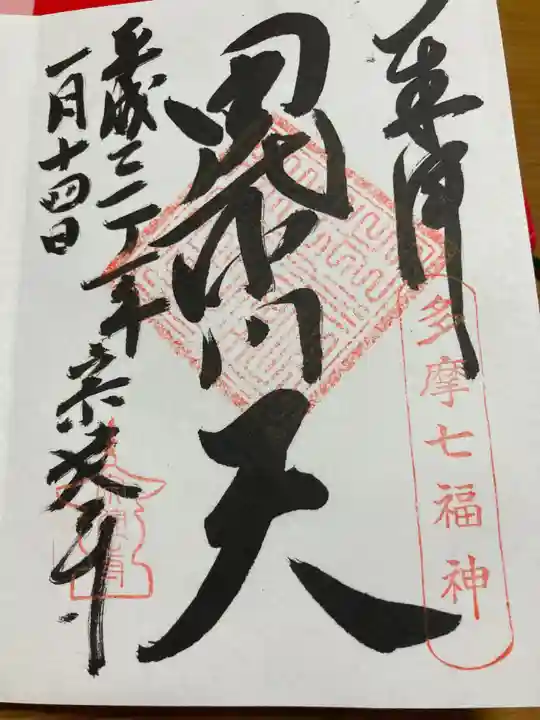 奉拝
多摩七福神
毘沙門天
平成三十一年
一月十四日
安養寺